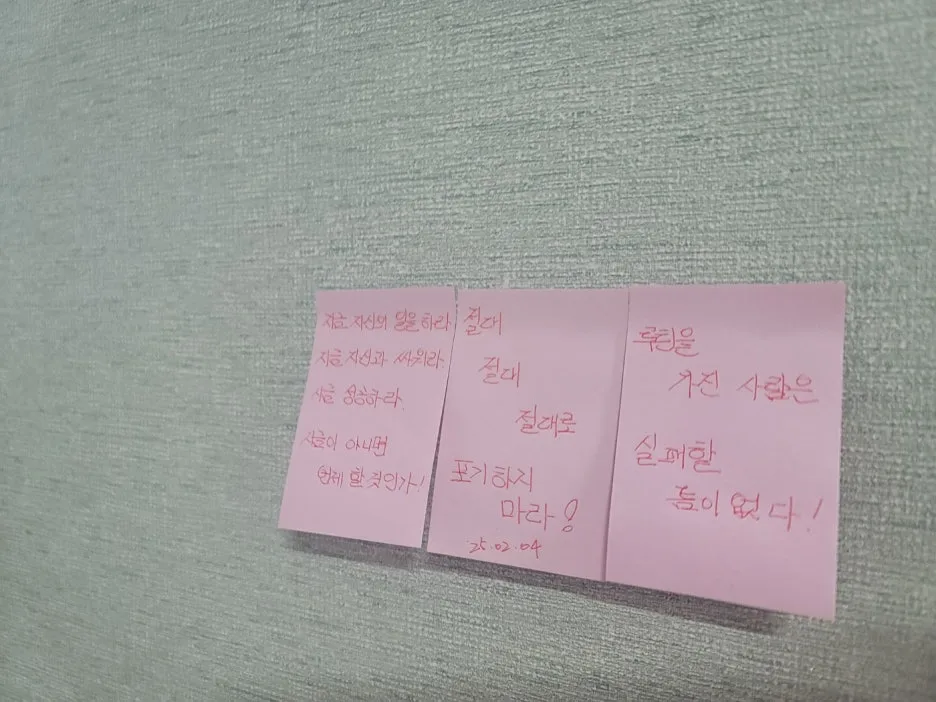 지금 자신의 일을 하라
지금 자신과 싸워라.
지금 용흥하라.
지금이 아니면
언제 할 것인가!
절대
절대
절대로
포기하지
마라!
25.02.04
루틴을
가진 사람은
실패할
틈이 없다!